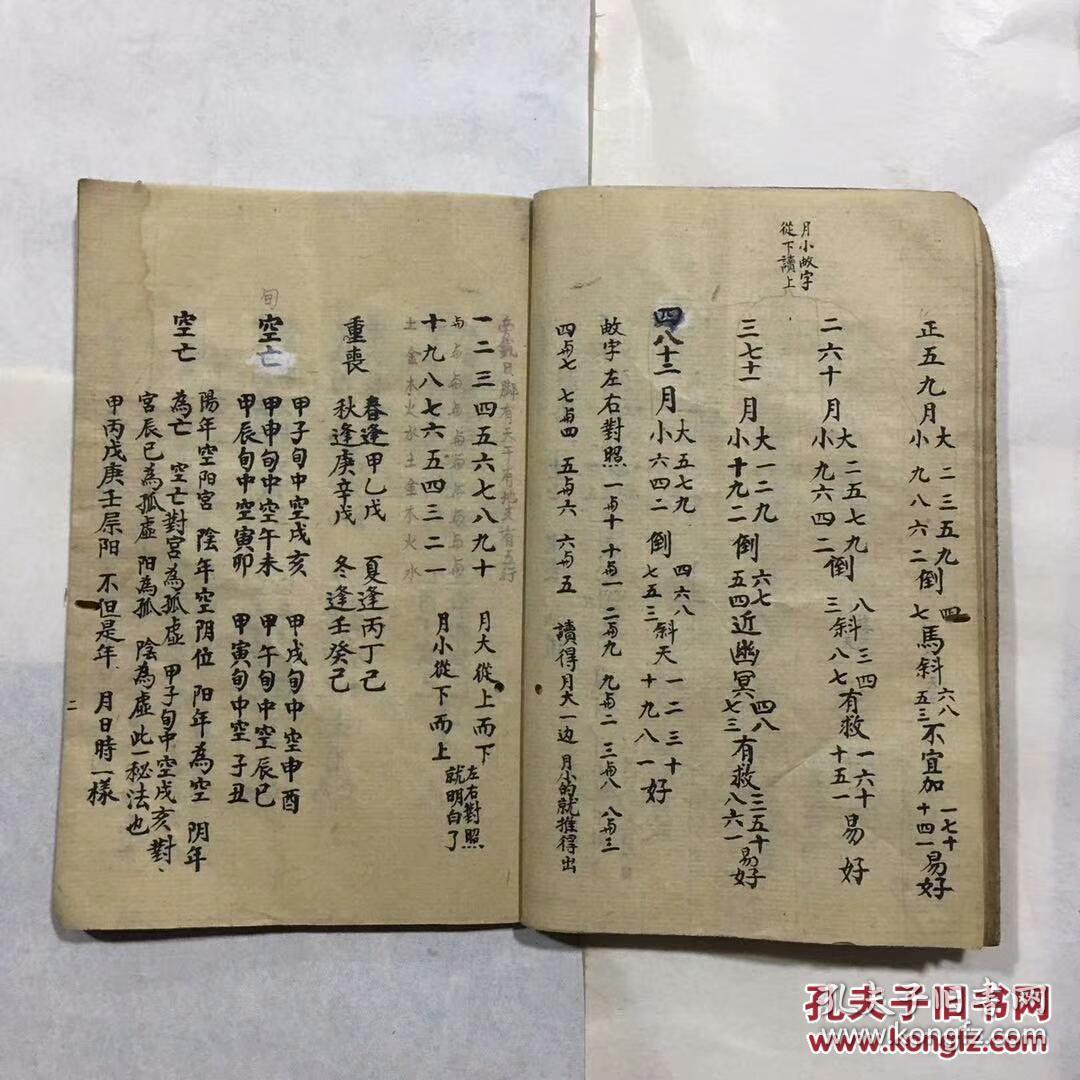 月小故字
從下讀上
正五九月 大 二三五九 小 九八六二 倒 四七 馬斜 六八 五三 不宜加 一七十 十四一 易好
二六十月 大 二五七九 小 九六四二 倒 八斜三四 三斜八七 有救 一六十 十五一 易好
三七十一月 大 一二九 小 十九二 倒 六七 五四 近幽冥 四八 七三 有救 三五十 八六一 易好
四八十二月 大 五七九 小 六四二 倒 四六八 七五三 斜天 一二三十 十九八一 好
故字左右對照 一与十 十与一 二与九 九与二 三与八 八与三
四与七 七与四 五与六 六与五 讀得月大一边 月小的就推得出
日腳有天干有地支有五行
一二三四五六七八九十 月大從上而下
与与与与与与与与与与
十九八七六五四三二一 月小從下而上
左右對照
就明白了
土金木火水土金木火水
重喪 春逢甲乙戊 夏逢丙丁己
秋逢庚辛戊 冬逢壬癸己
旬
空亡 甲子旬中空戌亥 甲戌旬中空申酉
甲申旬中空午未 甲午旬中空辰巳
甲辰旬中空寅卯 甲寅旬中空子丑
陽年空阳宮 陰年空阴位 阳年為空 阴年
空亡 為亡 空亡對宮為孤虛 甲子旬中空戌亥對
宮辰巳為孤虛 阳為孤 陰為虛此一秘法也
甲丙戊庚壬屬阳 不但是年 月日時一樣
二
孔夫子旧书网
www.kongfz.com